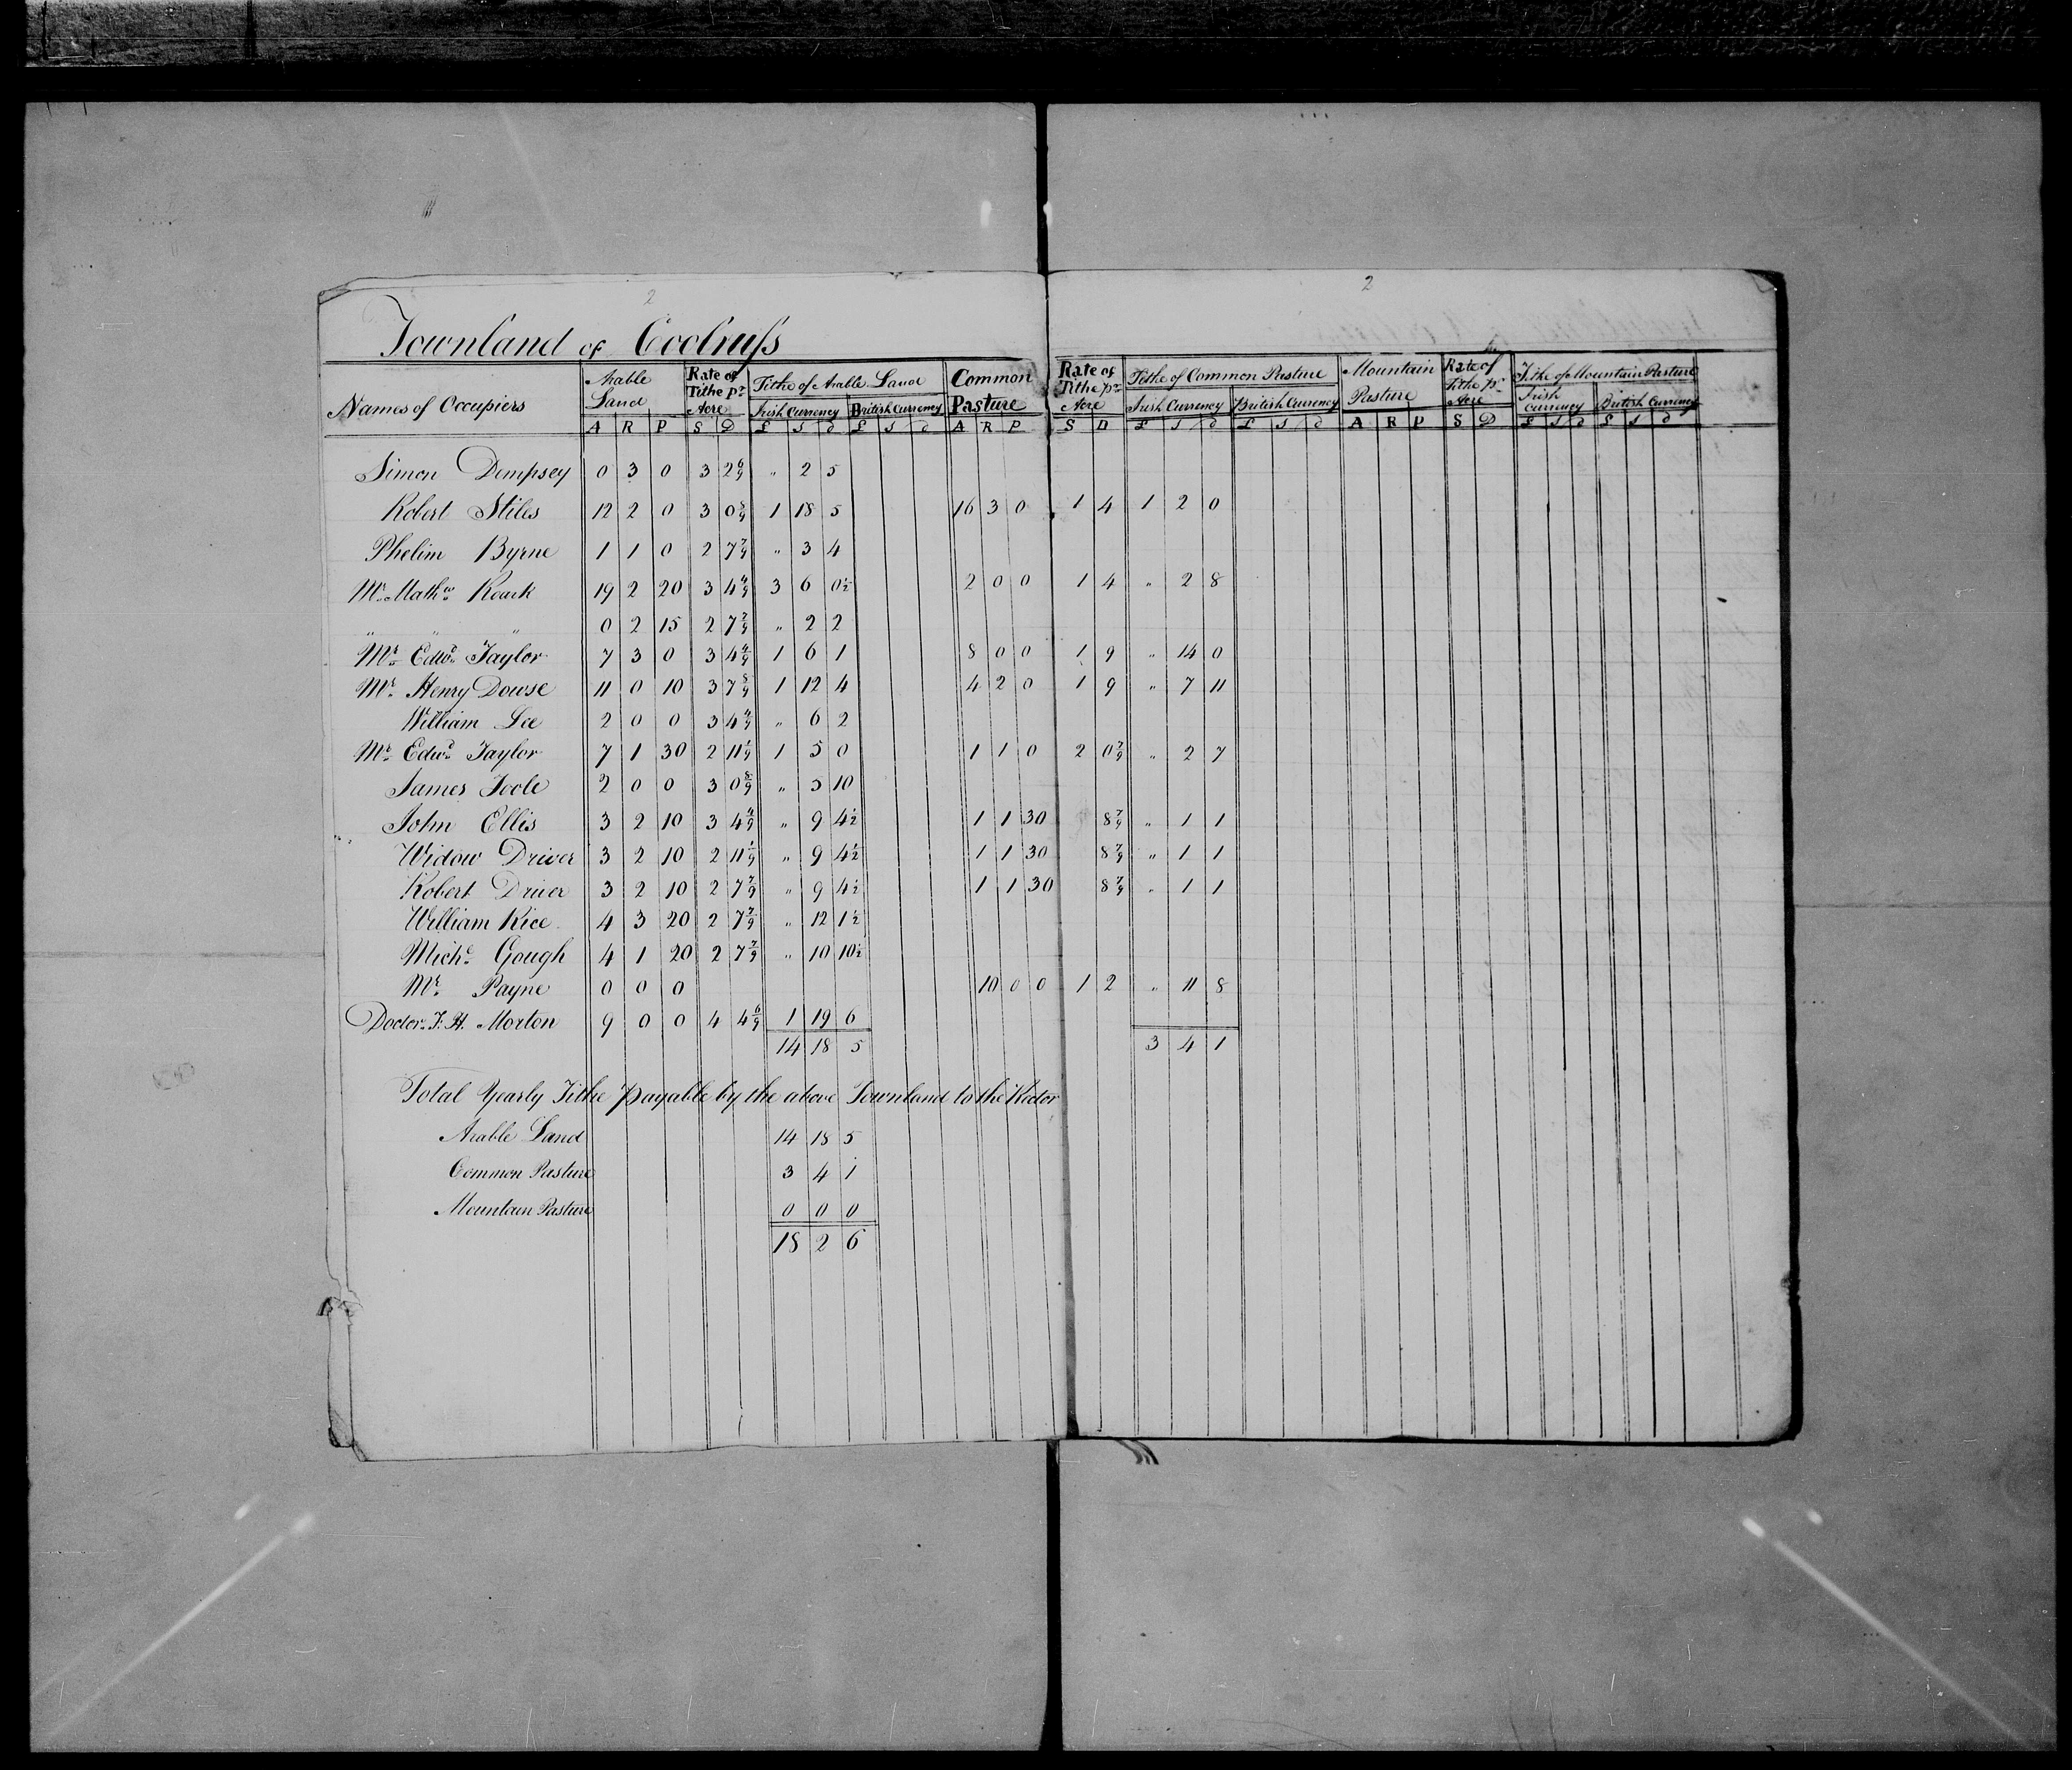 2 2
Townland of Coolruss
Names of Occupiers | Arable Land | Rate of Tithe pr Acre | Tithe of Arable Land | Common Pasture | Rate of Tithe pr Acre | Tithe of Common Pasture | Mountain Pasture | Rate of Tithe pr Acre | Tithe of Mountain Pasture
Irish Currency | British Currency | Irish Currency | British Currency | Irish Currency | British Currency
A R P | S D | £ S d | £ S d | A R P | S D | £ S d | £ S d | A R P | S D | £ S d | £ S d
Simon Dempsey 0 3 0 3 2 6/9 " 2 5
Robert Stiles 12 2 0 3 0 8/9 1 18 5 16 3 0 1 4 1 2 0
Phelim Byrne 1 1 0 2 7 7/9 " 3 4
Mr. Mathw. Roark 19 2 20 3 4 4/9 3 6 0½ 2 0 0 1 4 " 2 8
" " " 0 2 15 2 7 7/9 " 2 2
Mr. Edwd. Taylor 7 3 0 3 4 4/9 1 6 1 8 0 0 1 9 " 14 0
Mr. Henry Dowse 11 0 10 3 7 8/9 1 12 4 4 2 0 1 9 " 7 11
William Lee 2 0 0 3 4 4/9 " 6 2
Mr. Edwd. Taylor 7 1 30 2 11 1/9 1 5 0 1 1 0 2 0 7/9 " 2 7
James Toole 2 0 0 3 0 8/9 " 5 10
John Ellis 3 2 10 3 4 4/9 " 9 4½ 1 1 30 8 7/9 " 1 1
Widow Driver 3 2 10 2 11 1/9 " 9 4½ 1 1 30 8 7/9 " 1 1
Robert Driver 3 2 10 2 7 7/9 " 9 4½ 1 1 30 8 7/9 " 1 1
William Rice 4 3 20 2 7 7/9 " 12 1½
Michl. Gough 4 1 20 2 7 7/9 " 10 10½
Mr. Payne 0 0 0 10 0 0 1 2 " 11 8
Doctor J. H. Morton 9 0 0 4 4 6/9 1 19 6
14 18 5 3 4 1
Total Yearly Tithe payable by the above Townland to the Rector
Arable Land 14 18 5
Common Pasture 3 4 1
Mountain Pasture 0 0 0
18 2 6